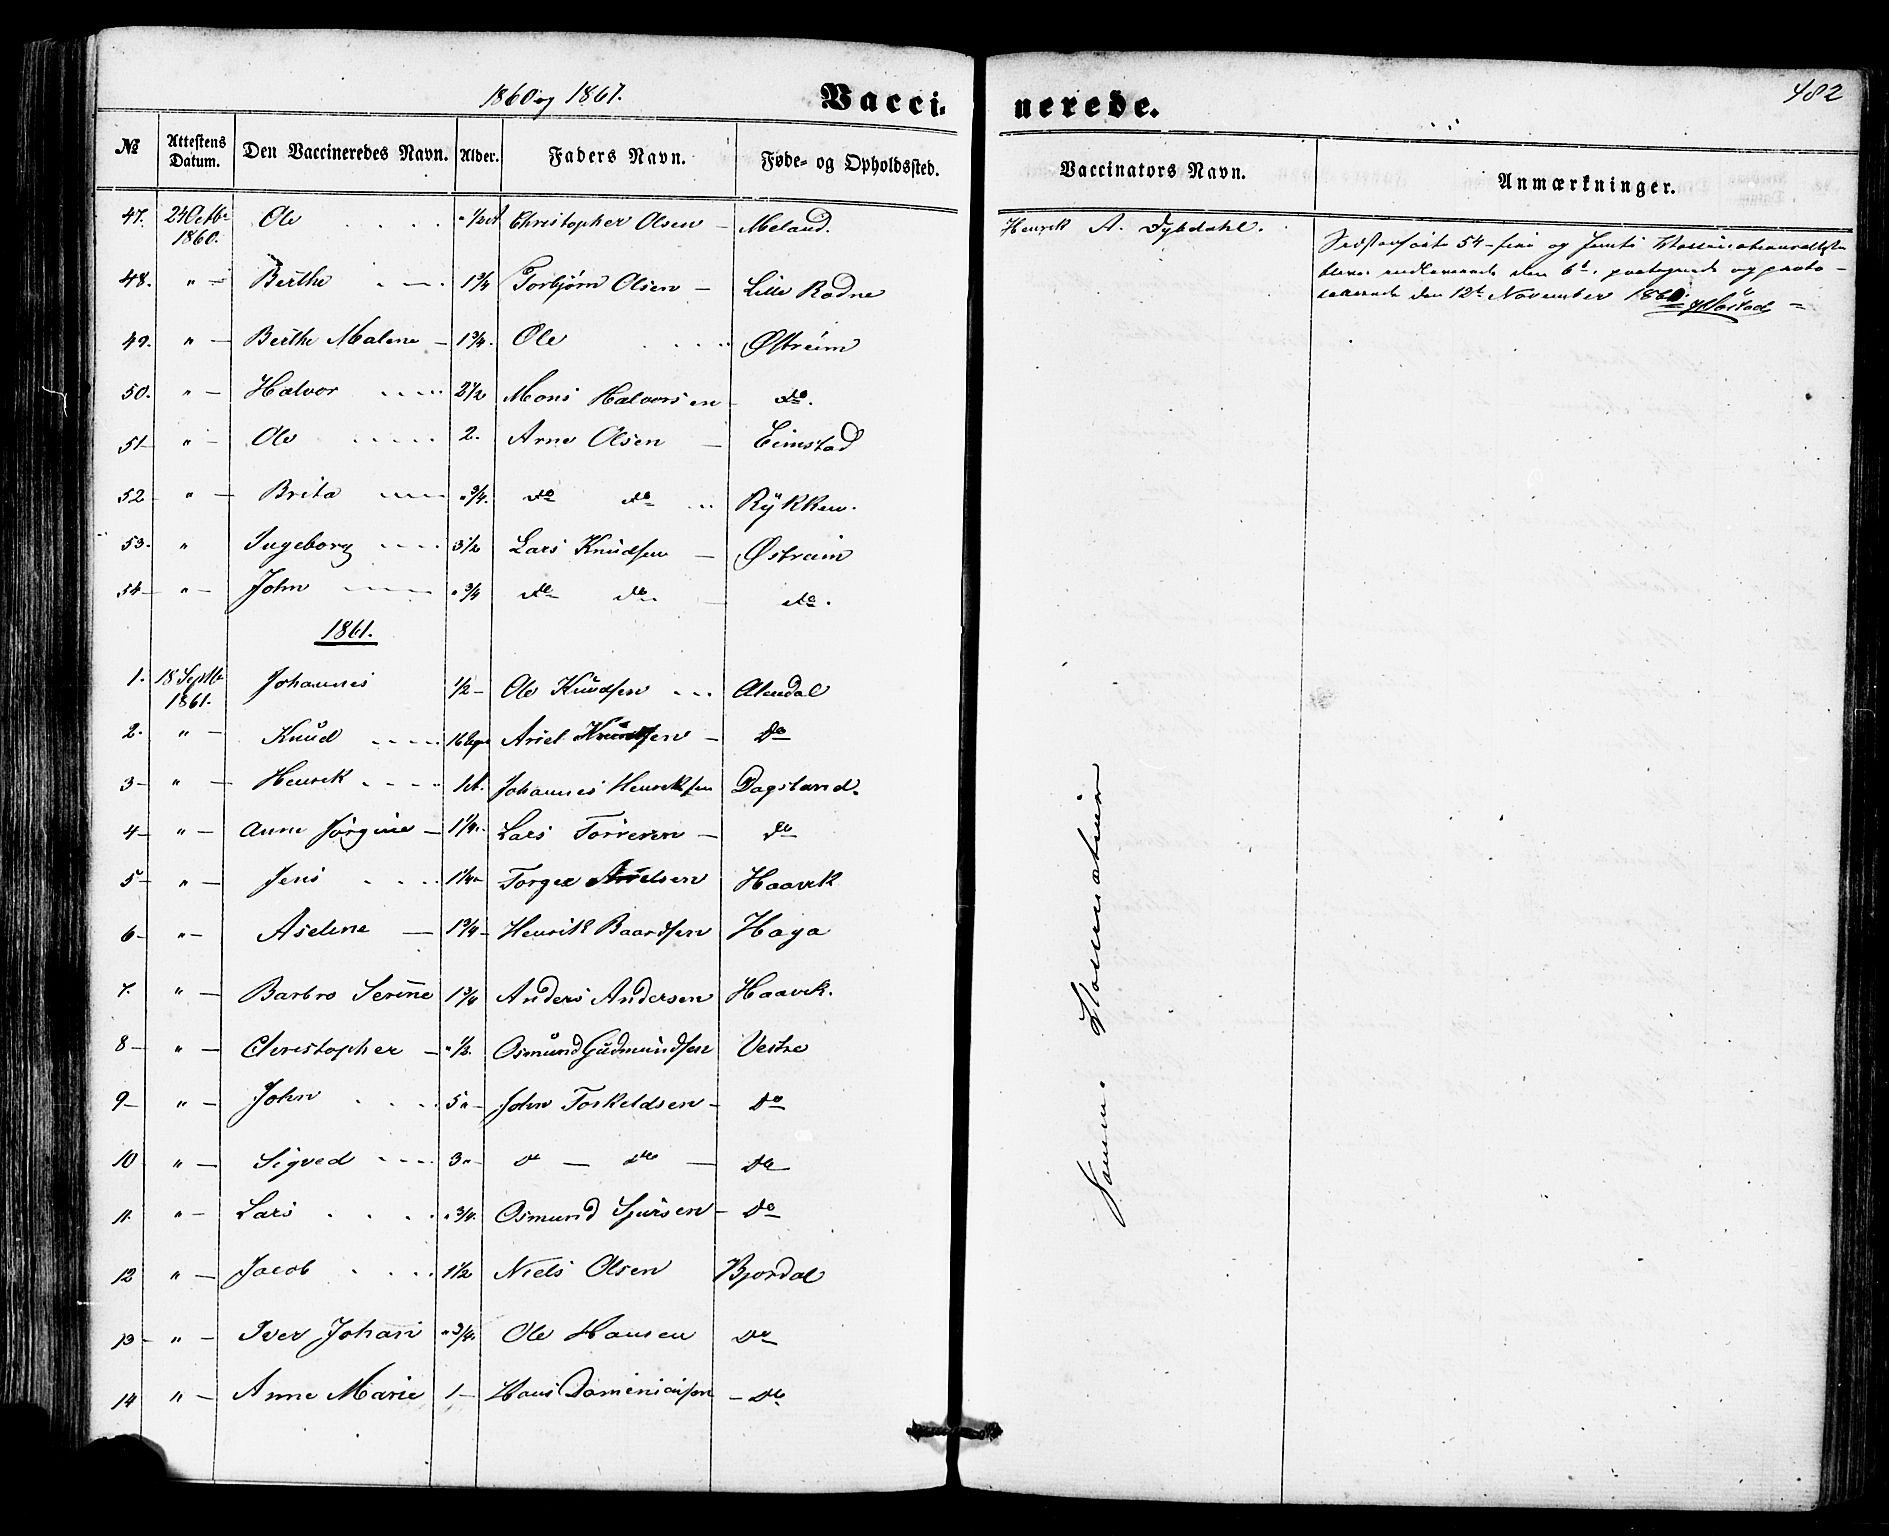 1860 og 1861.
Vacci-
nerede.
482
No
Attestens Datum.
Den Vaccineredes Navn.
Alder.
Faders Navn.
Føde- og Opholdssted.
Vaccinators Navn.
Anmærkninger.
47. 24 Octbr 1860. Ole " 1/2 Christopher Olsen – Meland. Henrik A. Dybdahl.
54 – og
den 6te,
den 12te November 1860.
48. " – Berthe 1 3/4 Torbjørn Olsen – Lille Rødne
49. " – Berthe Malene – 1 3/4. Ole Østreim
50. " – Halvor 2 1/2 Mons Halvorsen do.
51 – " – Ole 2. Arne Olsen – Eimstad
52 " – Brita " 3/4. do do Rykken.
53. " Ingeborg 3 1/2 Lars Knudsen – Østreim
54 – " – John " 3/4 do do. – do.
1861.
1. 18 Septbr 1861. Johannes 1/2 – Ole Knudsen Alnedal
2. " – Knud Aslet Knudsen – Do
3 – " – Henrik Johannes Henriksen Dagsland.
4 – " – Anne Jørgine – 1 1/4. Lars – do
5 – " – Jens Torger Haavik
6 – " – Aselene – 1 3/4 – Henrik Baardsen Haga
7. " – Barbro Serine 1 3/4 Anders Andersen Haavik.
8 – " – Christopher – " 1/2. Osmund Gudmundsen Vestre
9 – " – John 5 " – John Torkeldsen – Do
10 " – Sigved 3 " – do – do – Do
11. " – Lars " 3/4. Osmund Sjursen – Do
12 " – Jacob 1 1/2 Niels Olsen Bjordal
13 – " – Iver Johan " 3/4. Ole Hansen Do
14 " – Anne Marie 1 – Hans Dominicusen – Do
Samme Vaccinateur